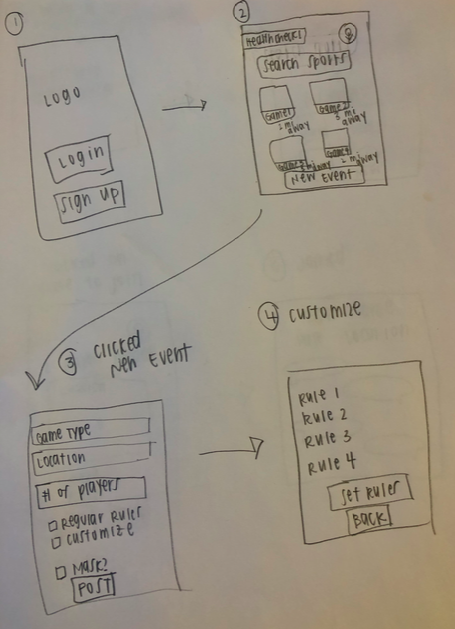 1
LOGO
Login
Sign up
2
Healthcheck!
Search Sports
Game1
2 mi
away
Game2
3 mi
away
Game3
mi away
Game4
2 mi
away
New Event
3 Clicked
New Event
Game Type
Location
# of players
Regular Rules
Customize
Mask?
POST
4 Customize
Rule 1
Rule 2
Rule 3
Rule 4
Set Rules
Back